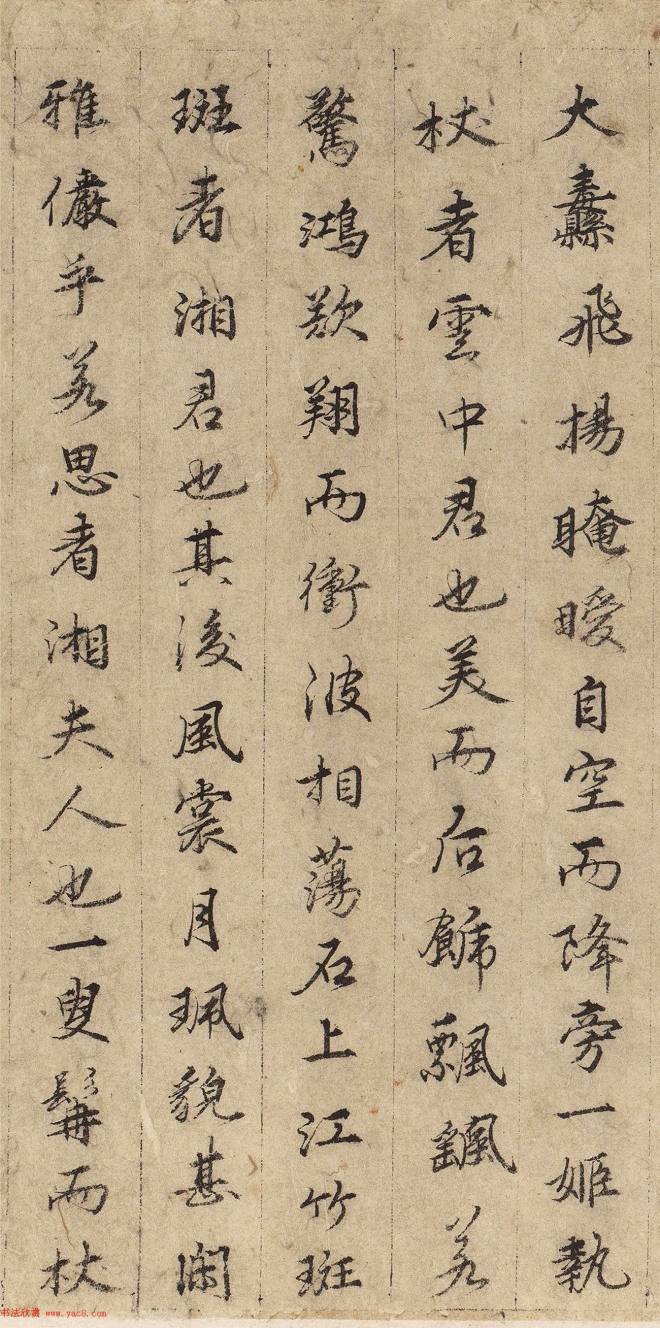 大纛飛揚晻曖自空而降旁一姬執
杖者雲中君也美而后餙飄颻若
驚鴻欲翔而衝波相蕩石上江竹斑
斑者湘君也其後風裳月珮貌甚閑
雅儼乎若思者湘夫人也一叟髯而杖
书法欣赏 www.yac8.com